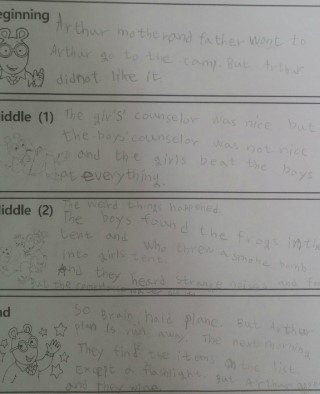 eginning
Arthur mother and father want to
Arthur go to the camp. But Arthur
did not like it.
iddle (1)
The girls' counselor was nice but
the boys' counselor was not nice
and the girls beat the boys
at everything.
iddle (2)
The weird things happened.
The boys found the frogs in the
tent and who threw a smoke bomb
into girls tent.
And they heard strange noises and
But the
nd
So Brain had plane. But Arthur
plan is run away. The next morning
They find the items on the list
except a flashlight. But Arthur
and they